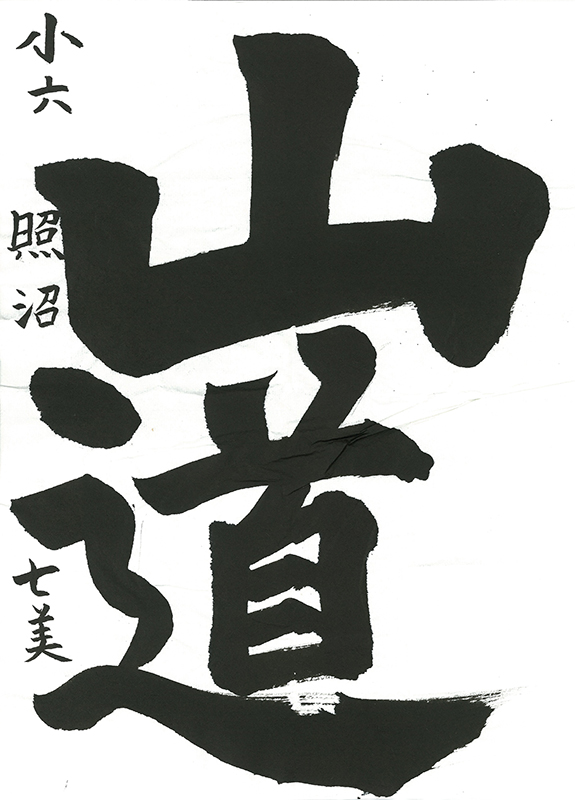 山道
小六 照沼 七美